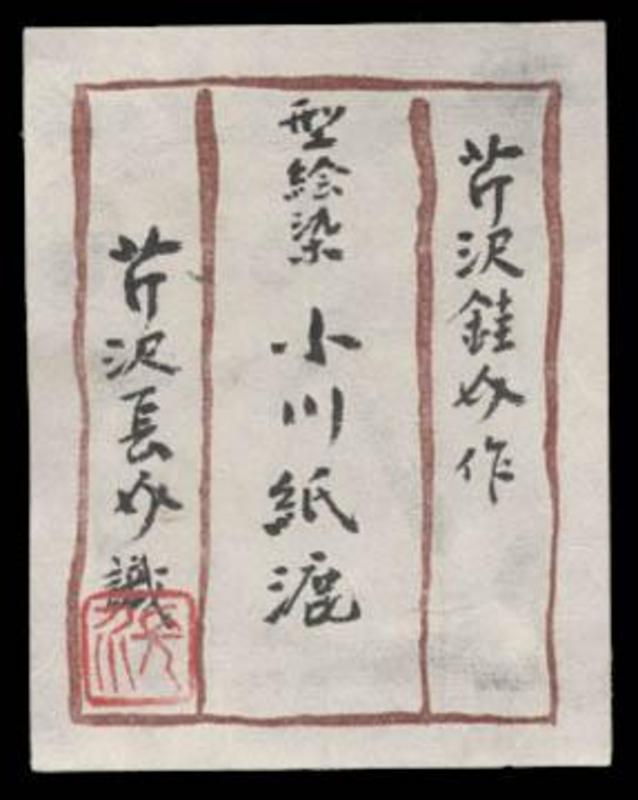 芹沢銈介作
型絵染 小川紙漉
芹沢長介識